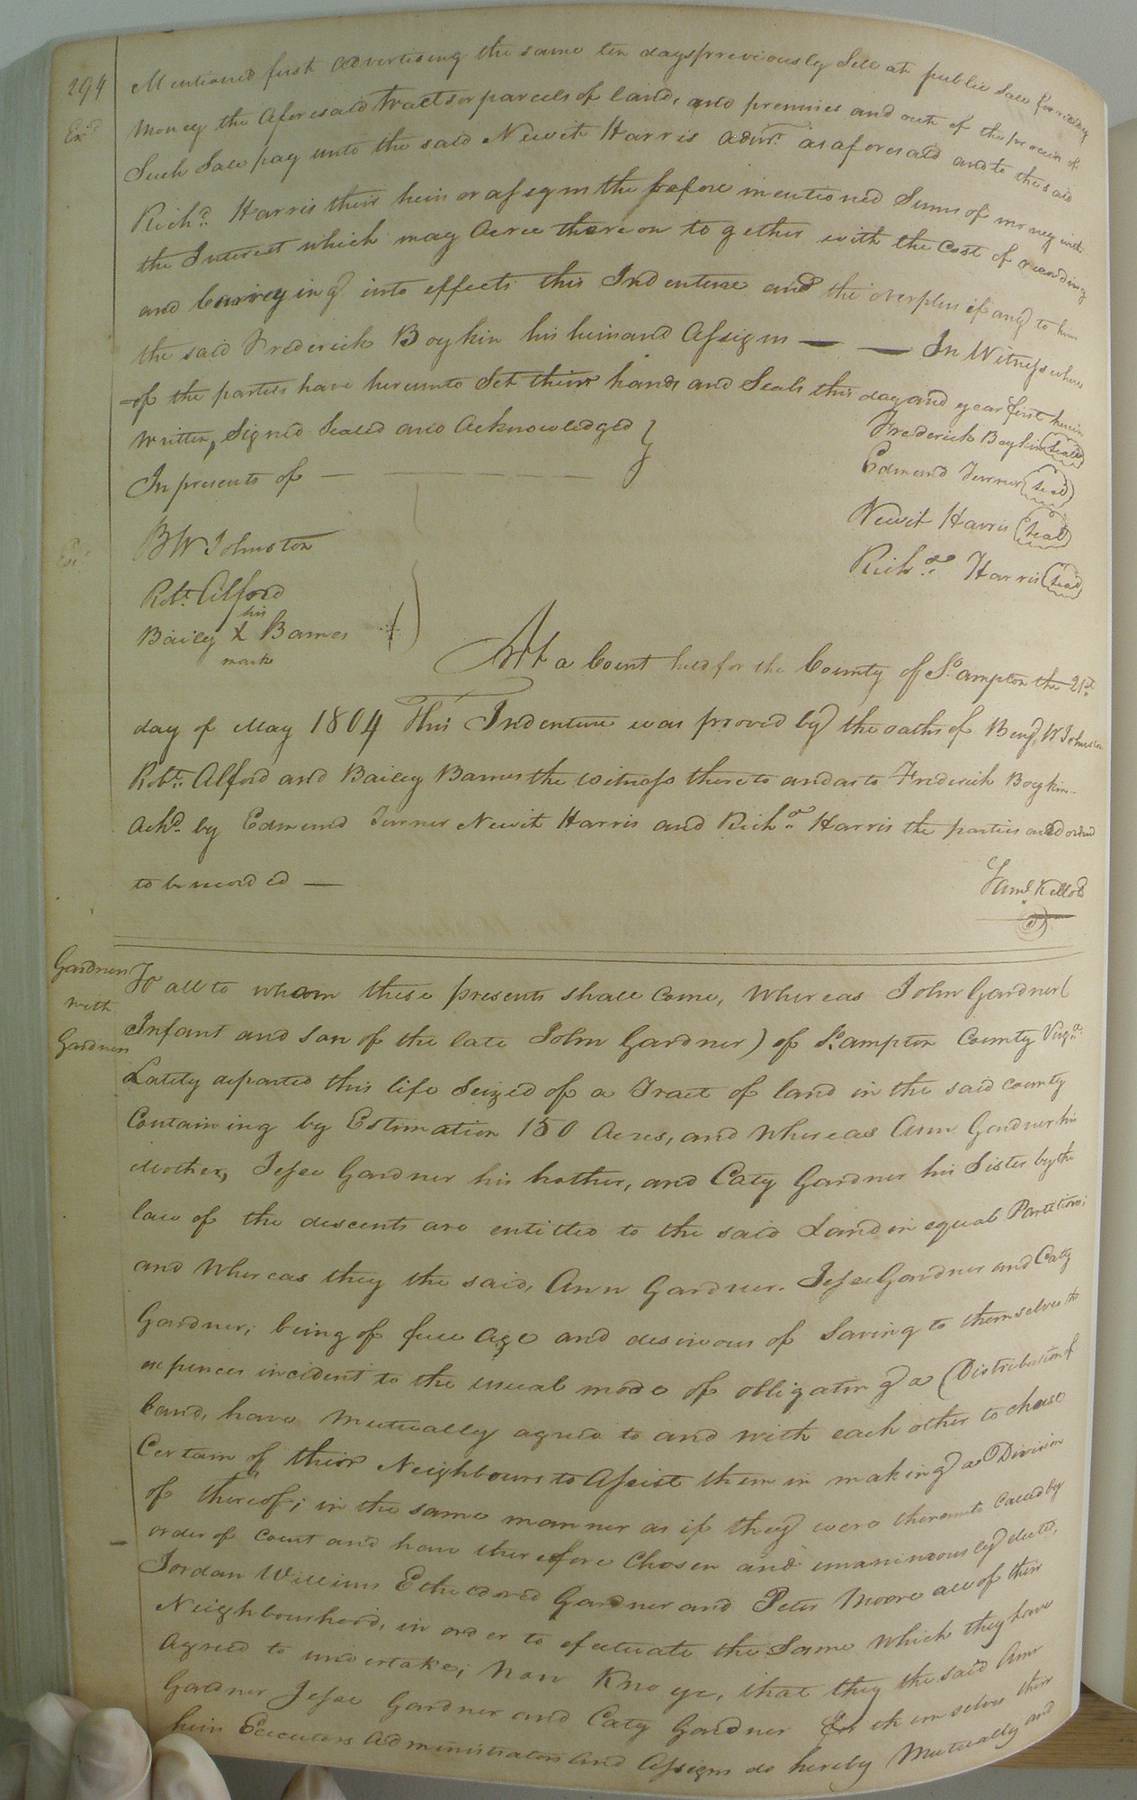 294
Exd
Mentioned first advertising the same ten days previously Sell at public Sale for ready
money the aforesaid tracts or parcels of land, and premises and out of the proceeds of
Such Sale pay unto the said Newit Harris admr. as aforesaid and to the said
Richd. Harris their heirs or assigns the before mentioned Sums of money with
the Interest which may Acree thereon together with the Cost of recording
and Carrying into effects this Indenture and the overplus if any to him
the said Frederick Boykin his heirs and Assigns — — In Witness whereof
of the parties have hereunto Set their hands and Seals this day and year first herein
written, Signed Sealed and Acknowledged }
In presents of —
Frederick Boykin (seal)
Edmund Turner (seal)
Newit Harris (seal)
Richd. Harris (seal)
BW Johnston
Robt. Alford
his
Bailey X Barnes
mark
At a Court held for the County of So.ampton the 21st.
day of May 1804 This Indenture was proved by the oaths of Benj. W Johnston
Robt. Alford and Bailey Barnes the witness thereto and as to Frederick Boykin
Ackd. by Edmund Turner Newit Harris and Richd. Harris the parties and ordred
to be recorded —
Saml. Kello
Gardners
with
Gardners
To all to whom these presents shall Come, Whereas John Gardner (
Infant and Son of the late John Gardner) of So.ampton County Virga.
Lately departed this life Seized of a Tract of land in the said county
Containing by Estimation 150 Acres, and Whereas Ann Gardner his
Mother, Jesse Gardner his brother, and Caty Gardner his Sister by the
law of the descents are entitled to the said Land in equal Partitions;
and Whereas they the said, Ann Gardner. Jesse Gardner and Caty
Gardner; being of full Age and desireous of Saving to themselves the
expences incident to the usual mode of obligating a Distribution of
Land, have Mutually agreed to and with each other to chuse
Certain of their Neighbours to Assist them in making a Division
of thereof; in the same manner as if they were thereunto Called by
order of Court and have therefore Chosen and unaninously elected,
Jordan Williams Etheldred Gardner and Peter Moore all of their
Neighbourhood, in order to efectuate the Same which they have
Agreed to undertake; Now Kno ye, that they the said Ann
Gardner Jesse Gardner and Caty Gardner for themselves their
heirs Executors Administrators and Assigns do hereby Mutually and